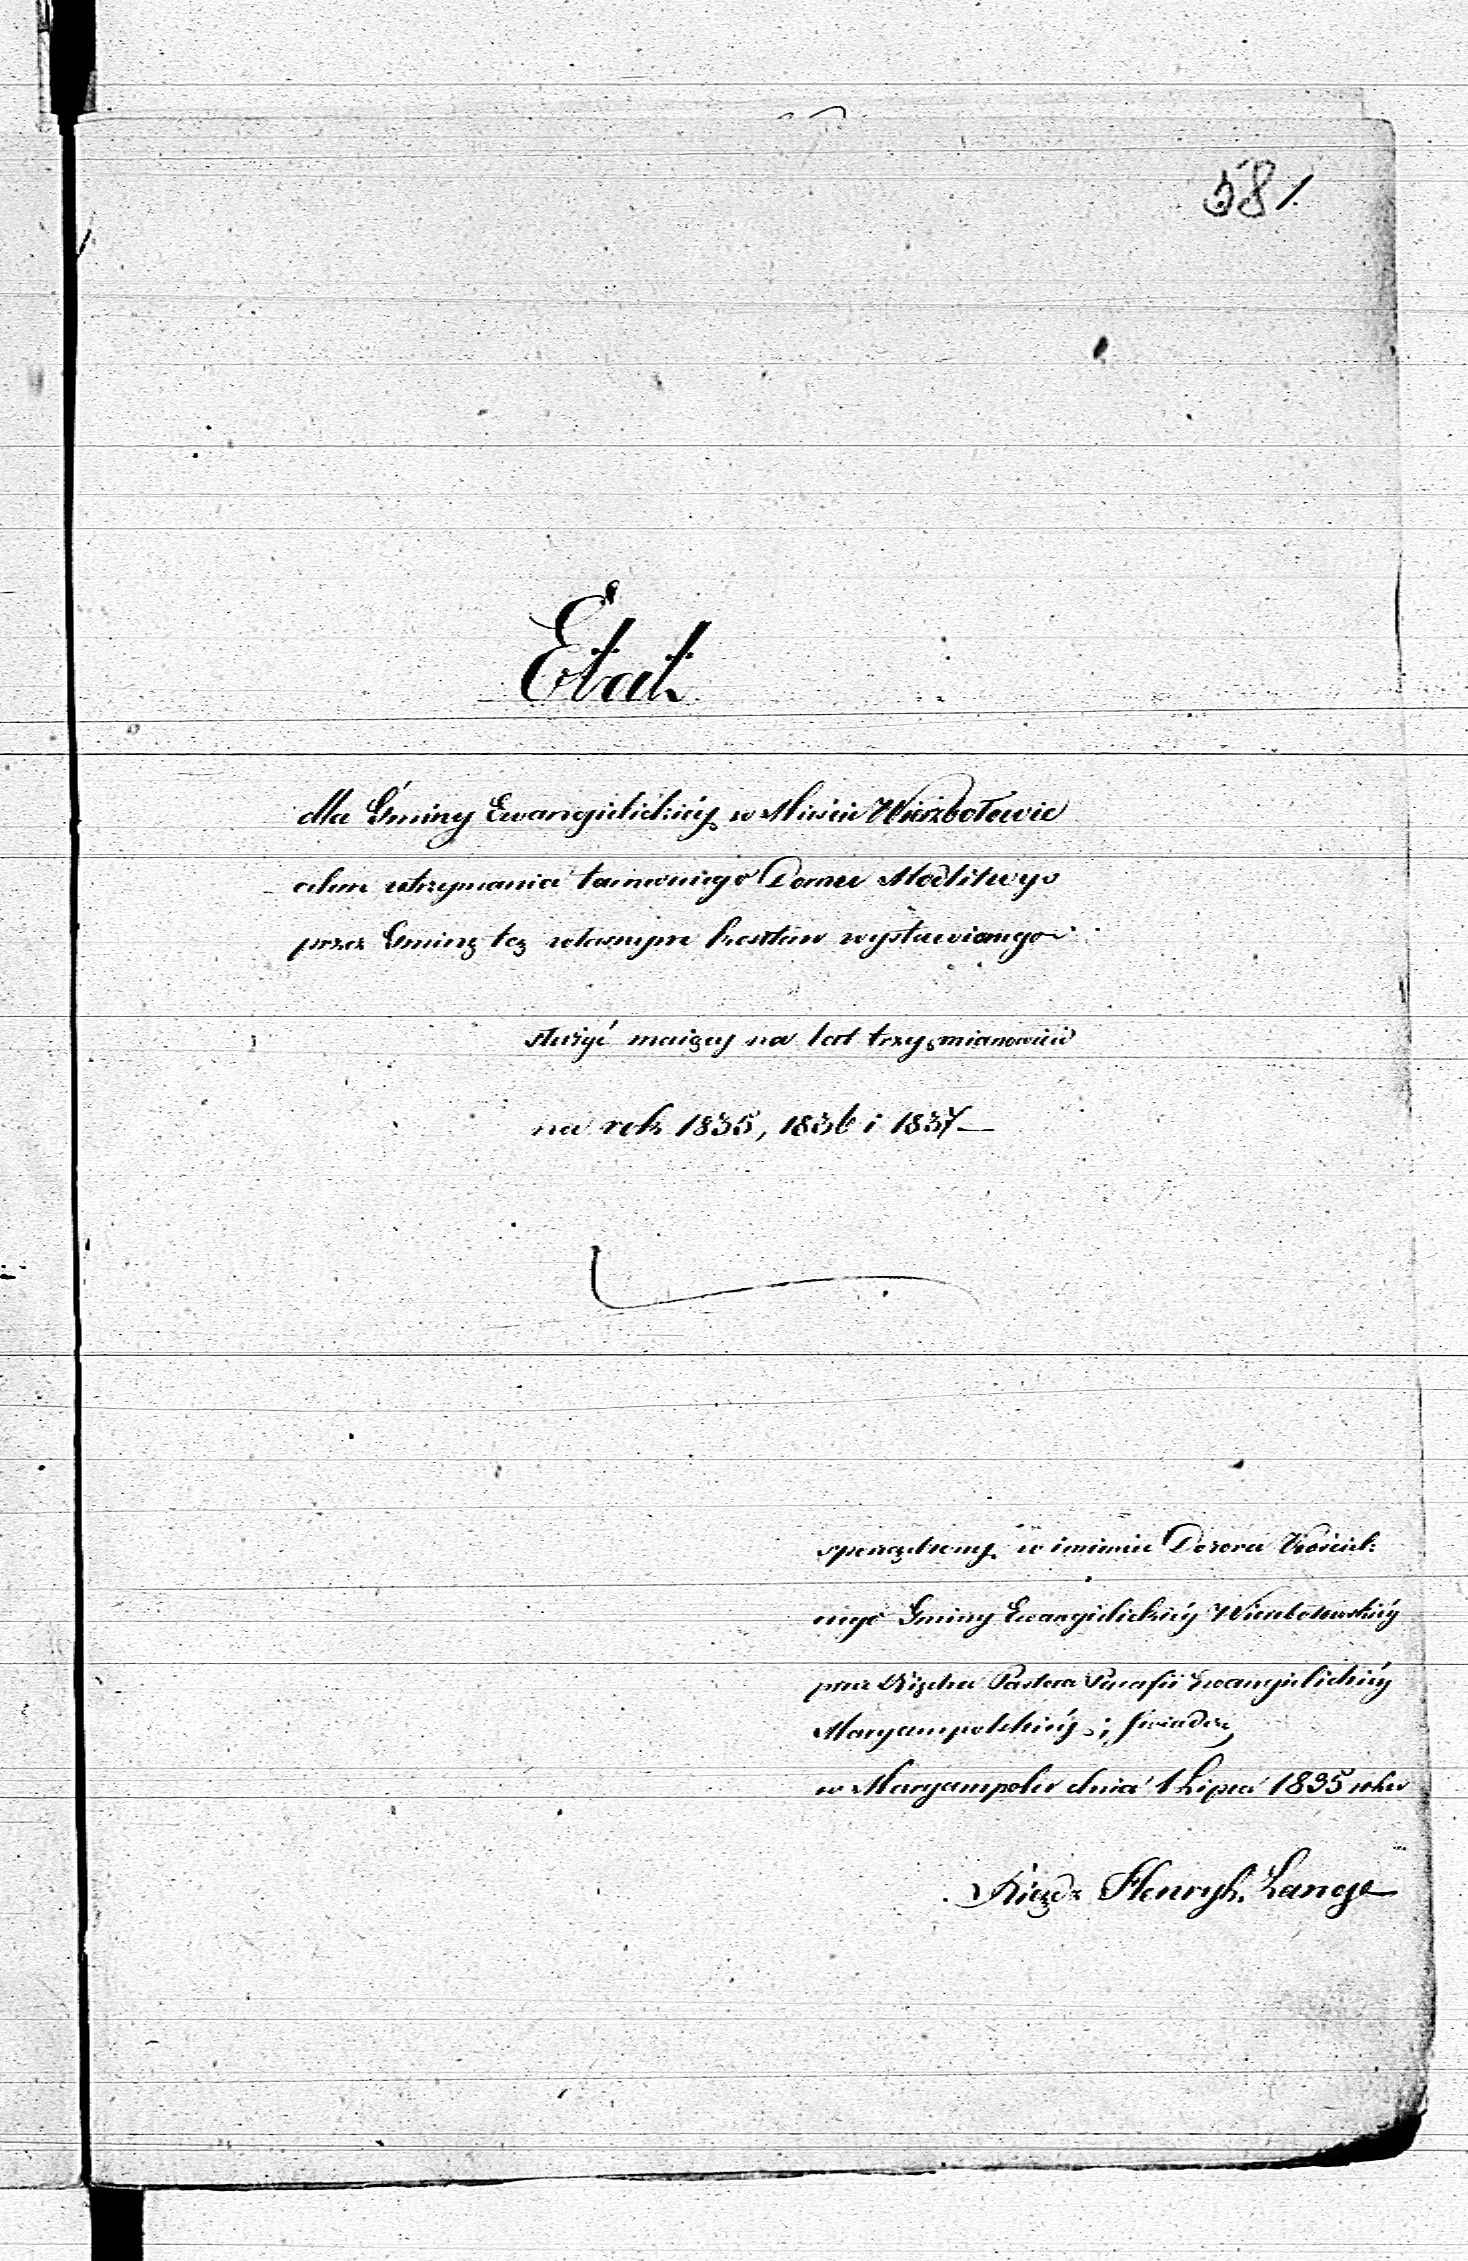 581.
Etat
dla Gminy Ewangelickiéy w Mieście Wierzbołowie
celem utrzymania tamecznego Domu Modlitwy
przez Gminę tę własnym kosztem wystawionego
służyć maiący na lat trzy, mianowicie
na rok 1835, 1836 i 1837 —
sporządzony w imieniu Dozoru Kościel-
nego Gminy Ewangelickiéy Wierzbołowskiéy
przez Xiędza Pastora Parafii Ewangelickiéy
Maryampolskiéy
w Maryampolu dnia 1 Lipca 1835 roku
Xiądz Henryk Lange